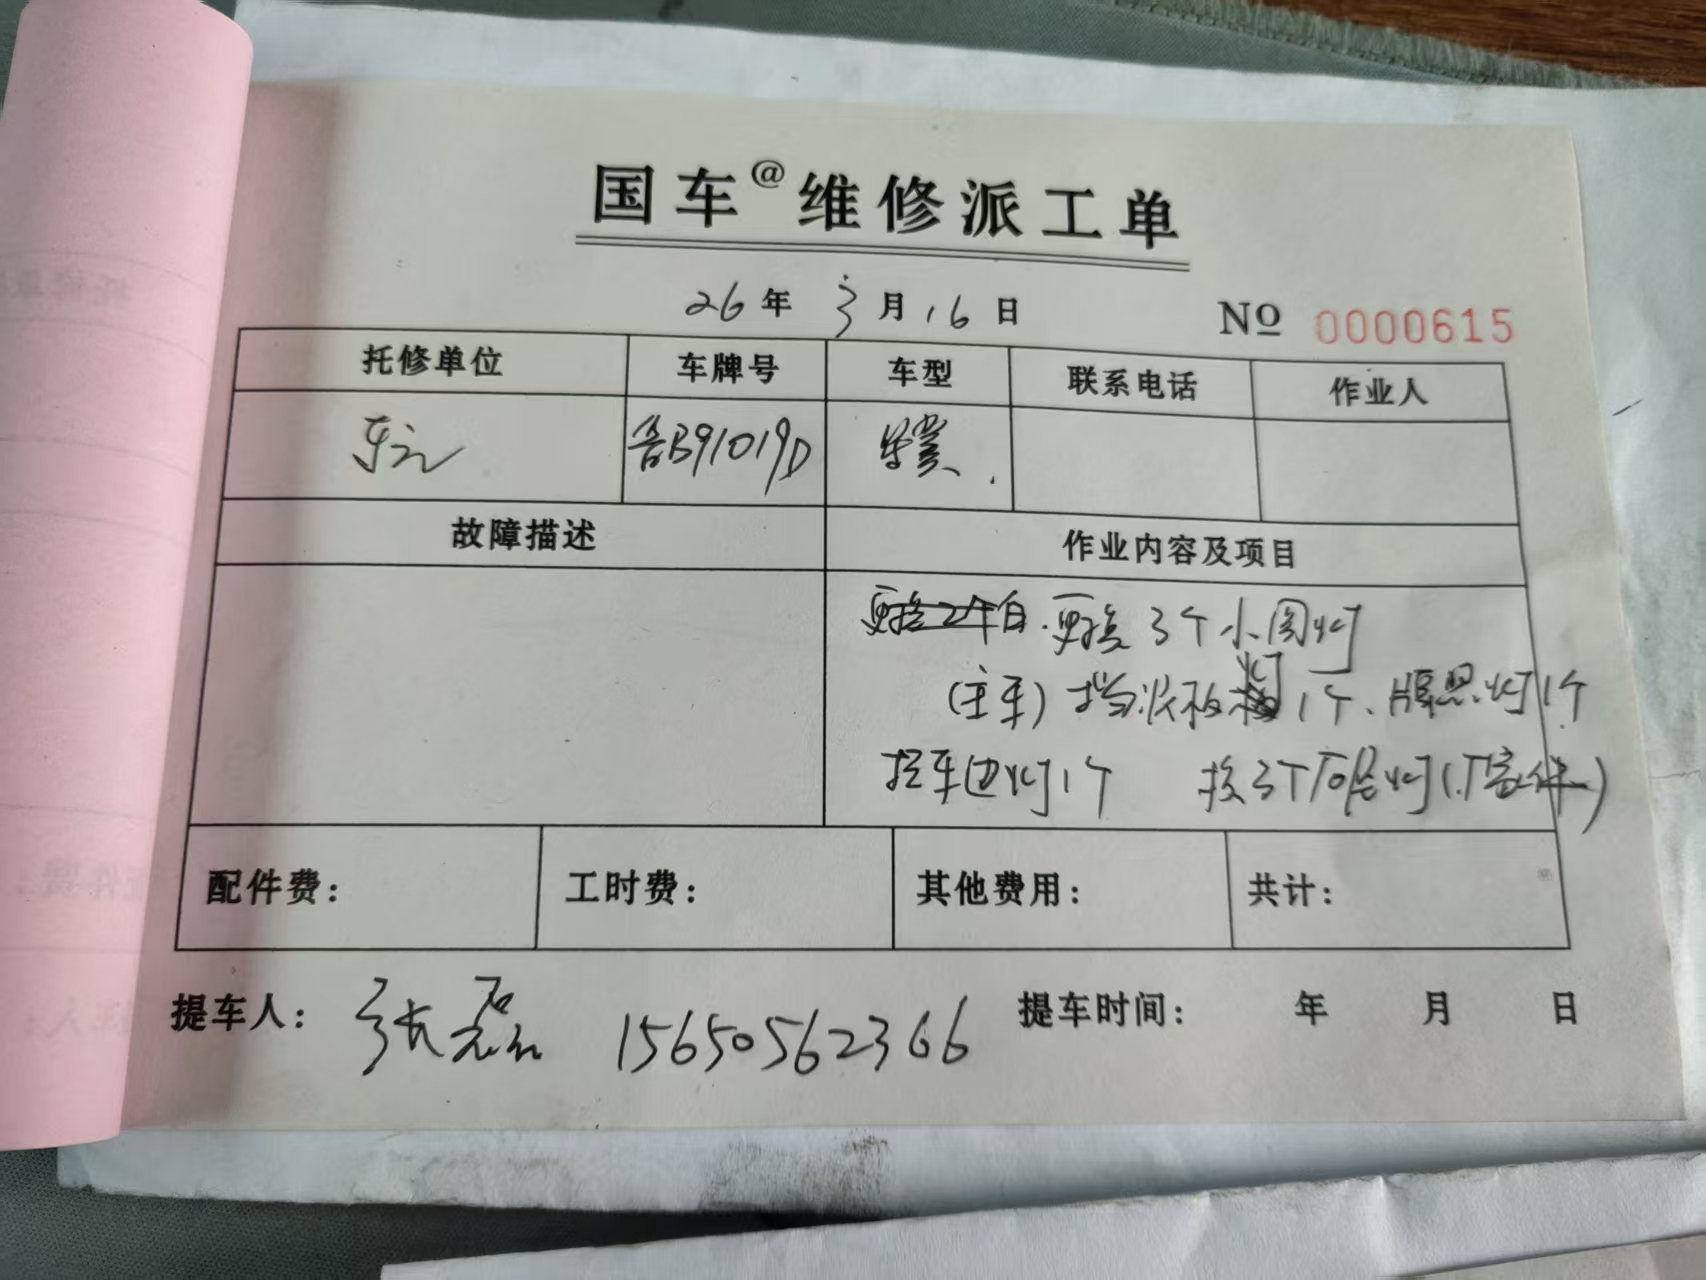 国车@维修派工单
26年 3月16日 No 0000615
托修单位 车牌号 车型 联系电话 作业人
鲁B91019D
故障描述 作业内容及项目
更换 3个小圆灯
(主车) 挡泥板灯1个、牌照灯1个
拖车边灯1个 换3个后尾灯
配件费: 工时费: 其他费用: 共计:
提车人: 张磊 15650562366 提车时间: 年 月 日